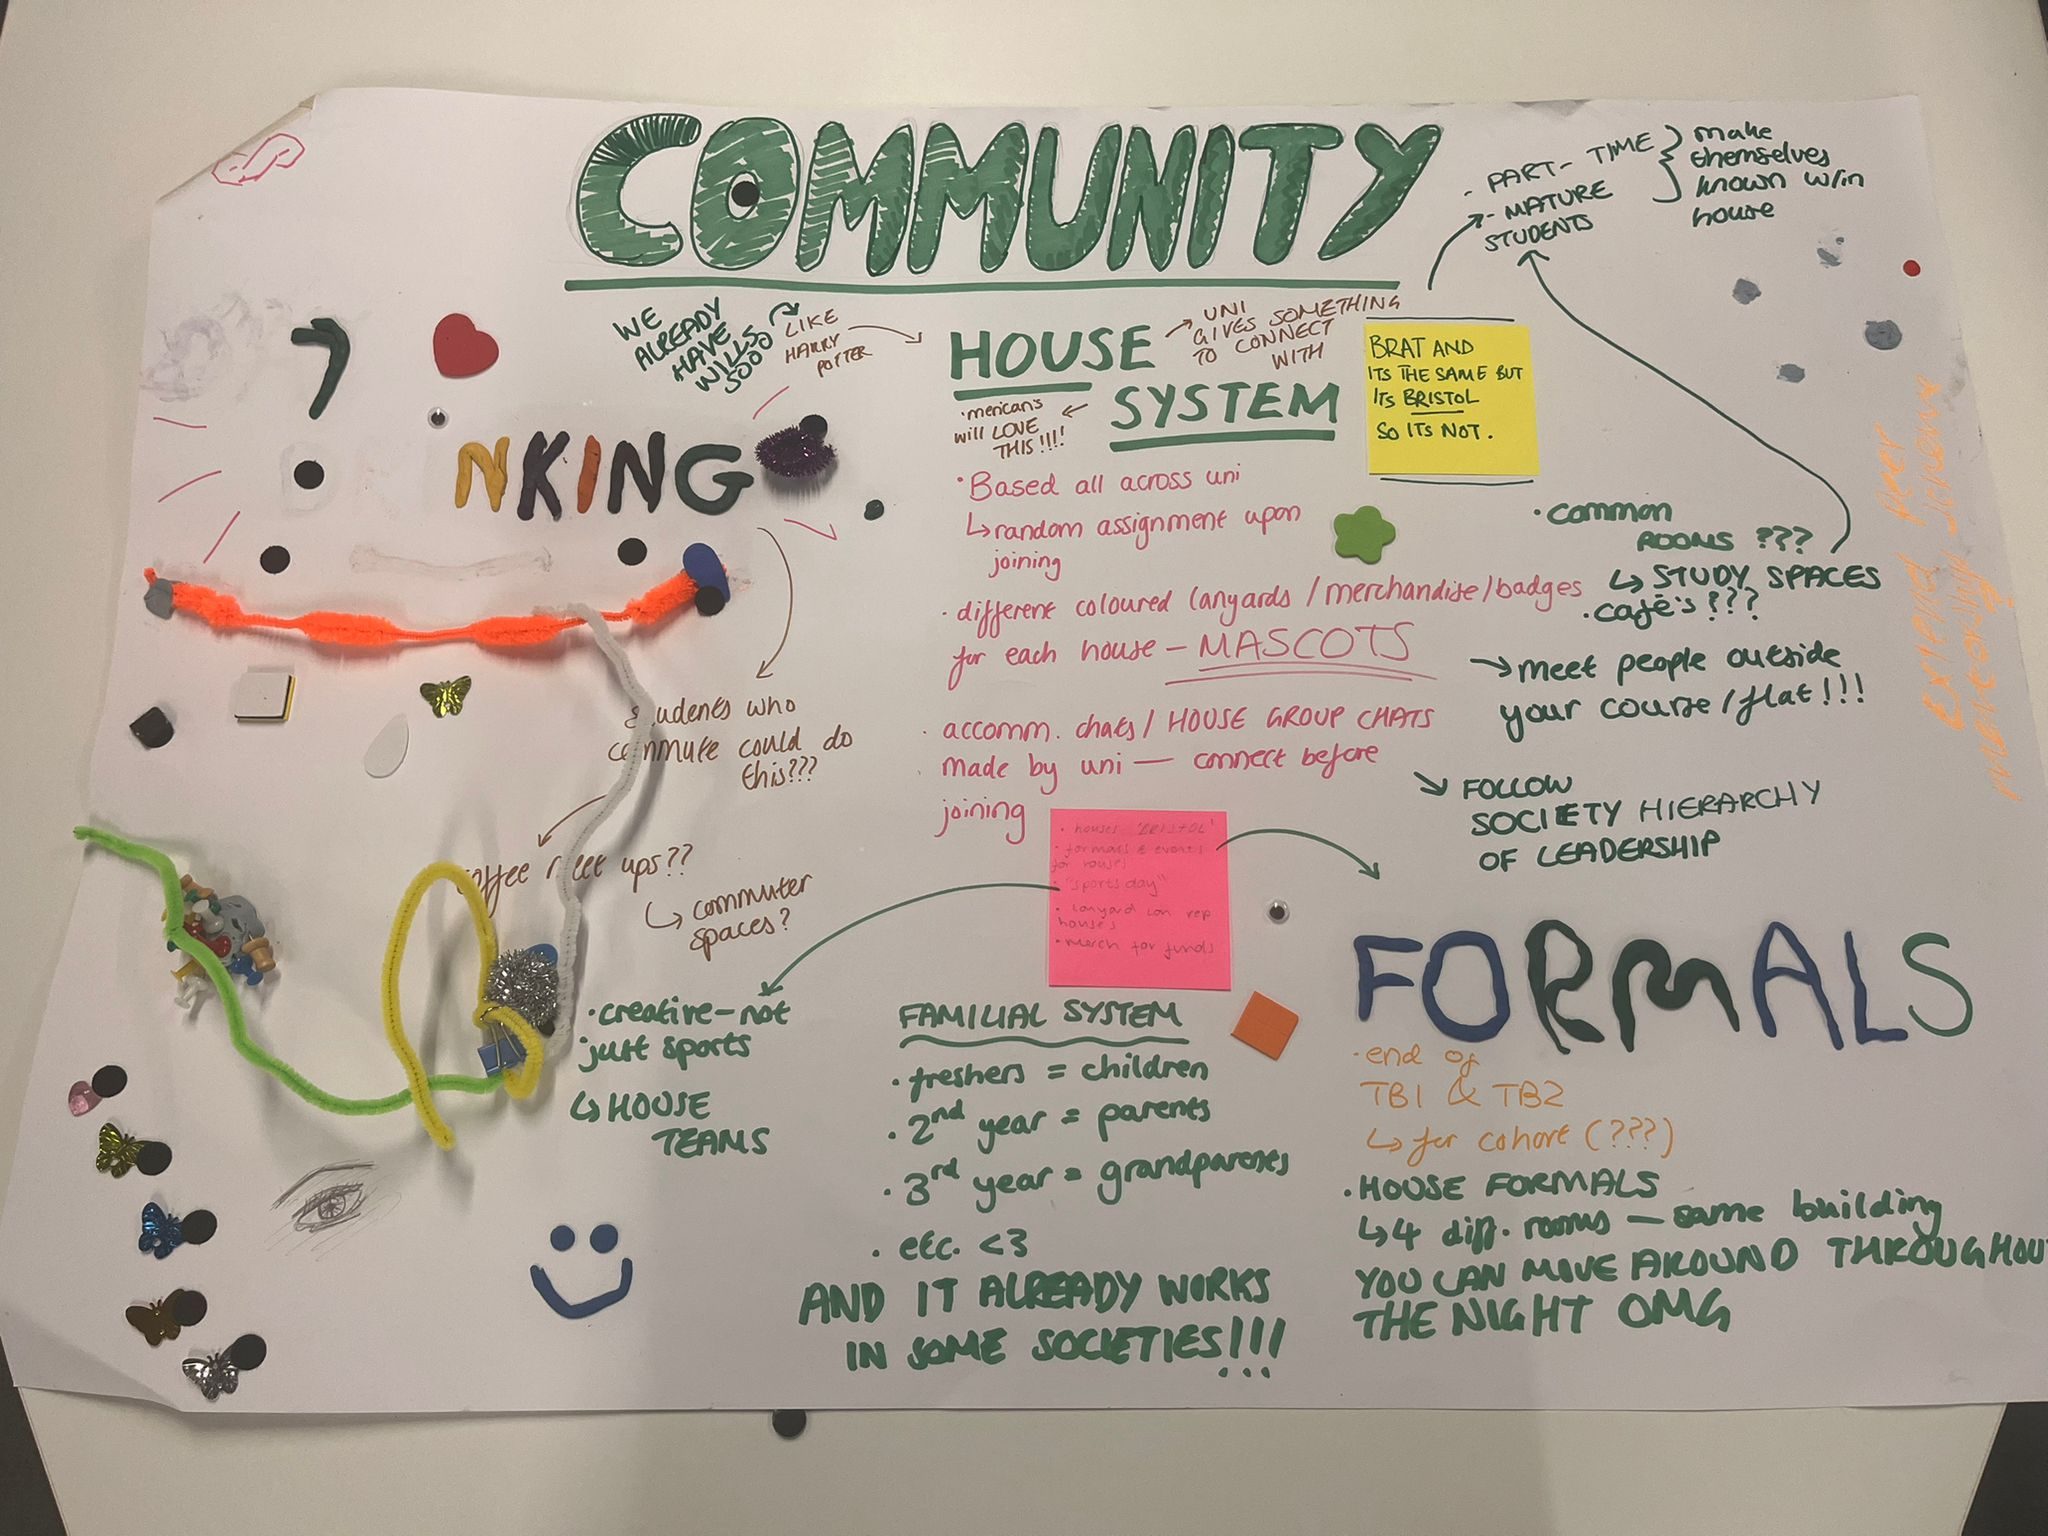 COMMUNITY
- PART-TIME
- MATURE
STUDENTS
make
themselves
known w/in
house
WE
ALREADY
HAVE
WILLS
5000
LIKE
HARRY
POTTER
HOUSE
SYSTEM
UNI
GIVES SOMETHING
TO CONNECT
WITH
BRAT AND
ITS THE SAME BUT
ITS BRISTOL
SO ITS NOT.
'merican's
will LOVE
THIS!!!!
NKING
• Based all across uni
↳ random assignment upon
joining
• different coloured lanyards/merchandise/badges
for each house – MASCOTS
• accomm. chats/HOUSE GROUP CHATS
made by uni — connect before
joining
• common
ROOMS ???
↳ STUDY SPACES
• café's???
→ meet people outside
your course/flat!!!
↘ FOLLOW
SOCIETY HIERARCHY
OF LEADERSHIP
Extend peer
mentoring scheme
students who
commute could do
this???
coffee meet ups??
↳ commuter
spaces?
• houses 'BRISTOL'
• formals & events
for houses
• "sports day"
• lanyard can rep
houses
• merch for funds
• creative – not
just sports
↳ HOUSE
TEAMS
FAMILIAL SYSTEM
• freshers = children
• 2nd year = parents
• 3rd year = grandparents
• etc. <3
AND IT ALREADY WORKS
IN SOME SOCIETIES!!!
FORMALS
• end of
TB1 & TB2
↳ for cohort (???)
• HOUSE FORMALS
↳ 4 diff. rooms — same building
YOU CAN MOVE AROUND THROUGHOUT
THE NIGHT OMG